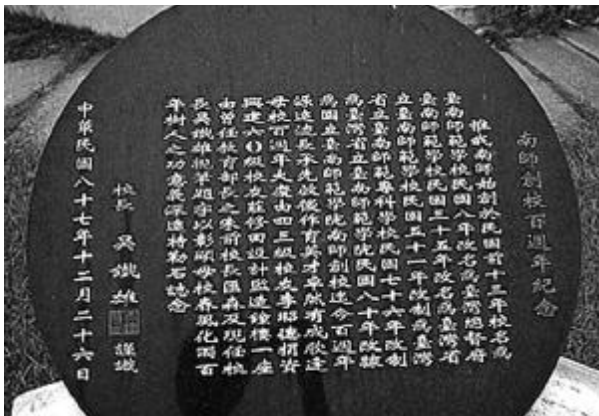 南師創校百週年紀念
推我南師始創於民國前十三年校名為
臺南師範學校民國八年改名為臺灣總督府
臺南師範學校民國三十五年改名為臺灣省
立臺南師範學校民國五十一年改制為臺灣
省立臺南師範專科學校民國七十六年改制
為臺灣省立臺南師範學院民國八十年改隸
為國立臺南師範學院南師創校迄今百週年
源遠流長承先啟後作育英才卓然有成欣逢
母校百週年大慶由四三級校友李昭德捐資
興建六〇級校友莊修田設計監造鐘樓一座
由曾任教育部長之朱前校長匯森及現任校
長吳鐵雄親筆題字以彰顯母校春風化雨百
年樹人之功意義深遠特勒石誌念
校長 吳鐵雄 謹識
中華民國八十七年十二月二十六日